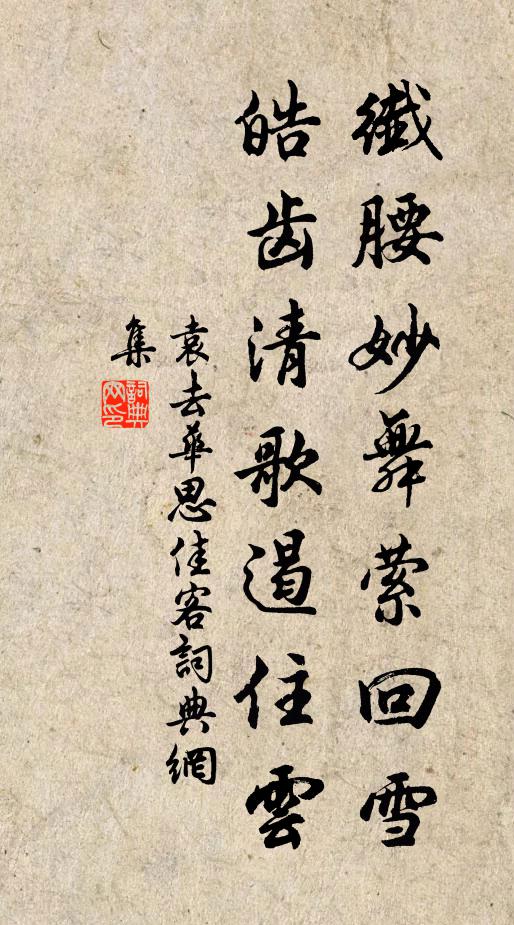 纖腰妙舞縈回雪
皓齿清歌遏住雲
袁去華思佳客詞典網
集
詞典網印